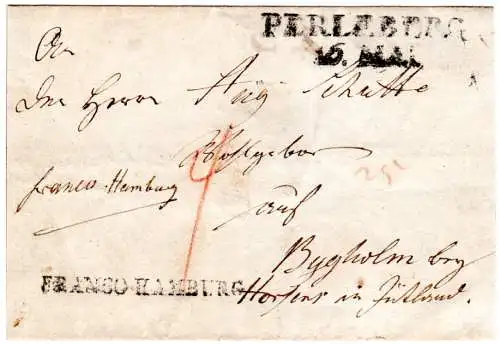 PERLEBERG
16. MAI
An
Den Herrn Aug Schütte
Wohlgebor
franco Hamburg
auf
Bygholm bey
FRANCO HAMBURG
Horsens in Jütland.